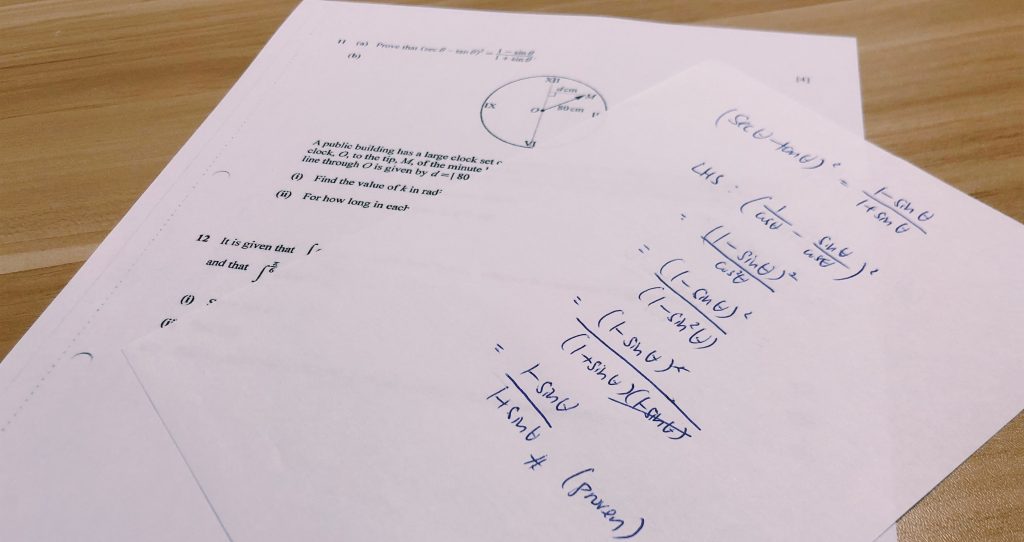 11 (a) Prove that (sec θ − tan θ)² = (1 − sin θ)/(1 + sin θ).
[4]
(b)
XII
d cm
M
IX
O
80 cm
VI
A public building has a large clock set
clock, O, to the tip, M, of the minute
line through O is given by d = | 80
(i) Find the value of k in rad
(ii) For how long in each
12 It is given that ∫
and that ∫ π/6
(i)
(ii
(sec θ − tan θ)² = (1 − sin θ)/(1 + sin θ)
LHS : (1/cos θ − sin θ/cos θ)²
= (1 − sin θ)²/cos²θ
= (1 − sin θ)²/(1 − sin²θ)
= (1 − sin θ)²/(1 + sin θ)(1 − sin θ)
= 1 − sin θ/1 + sin θ
(proven)